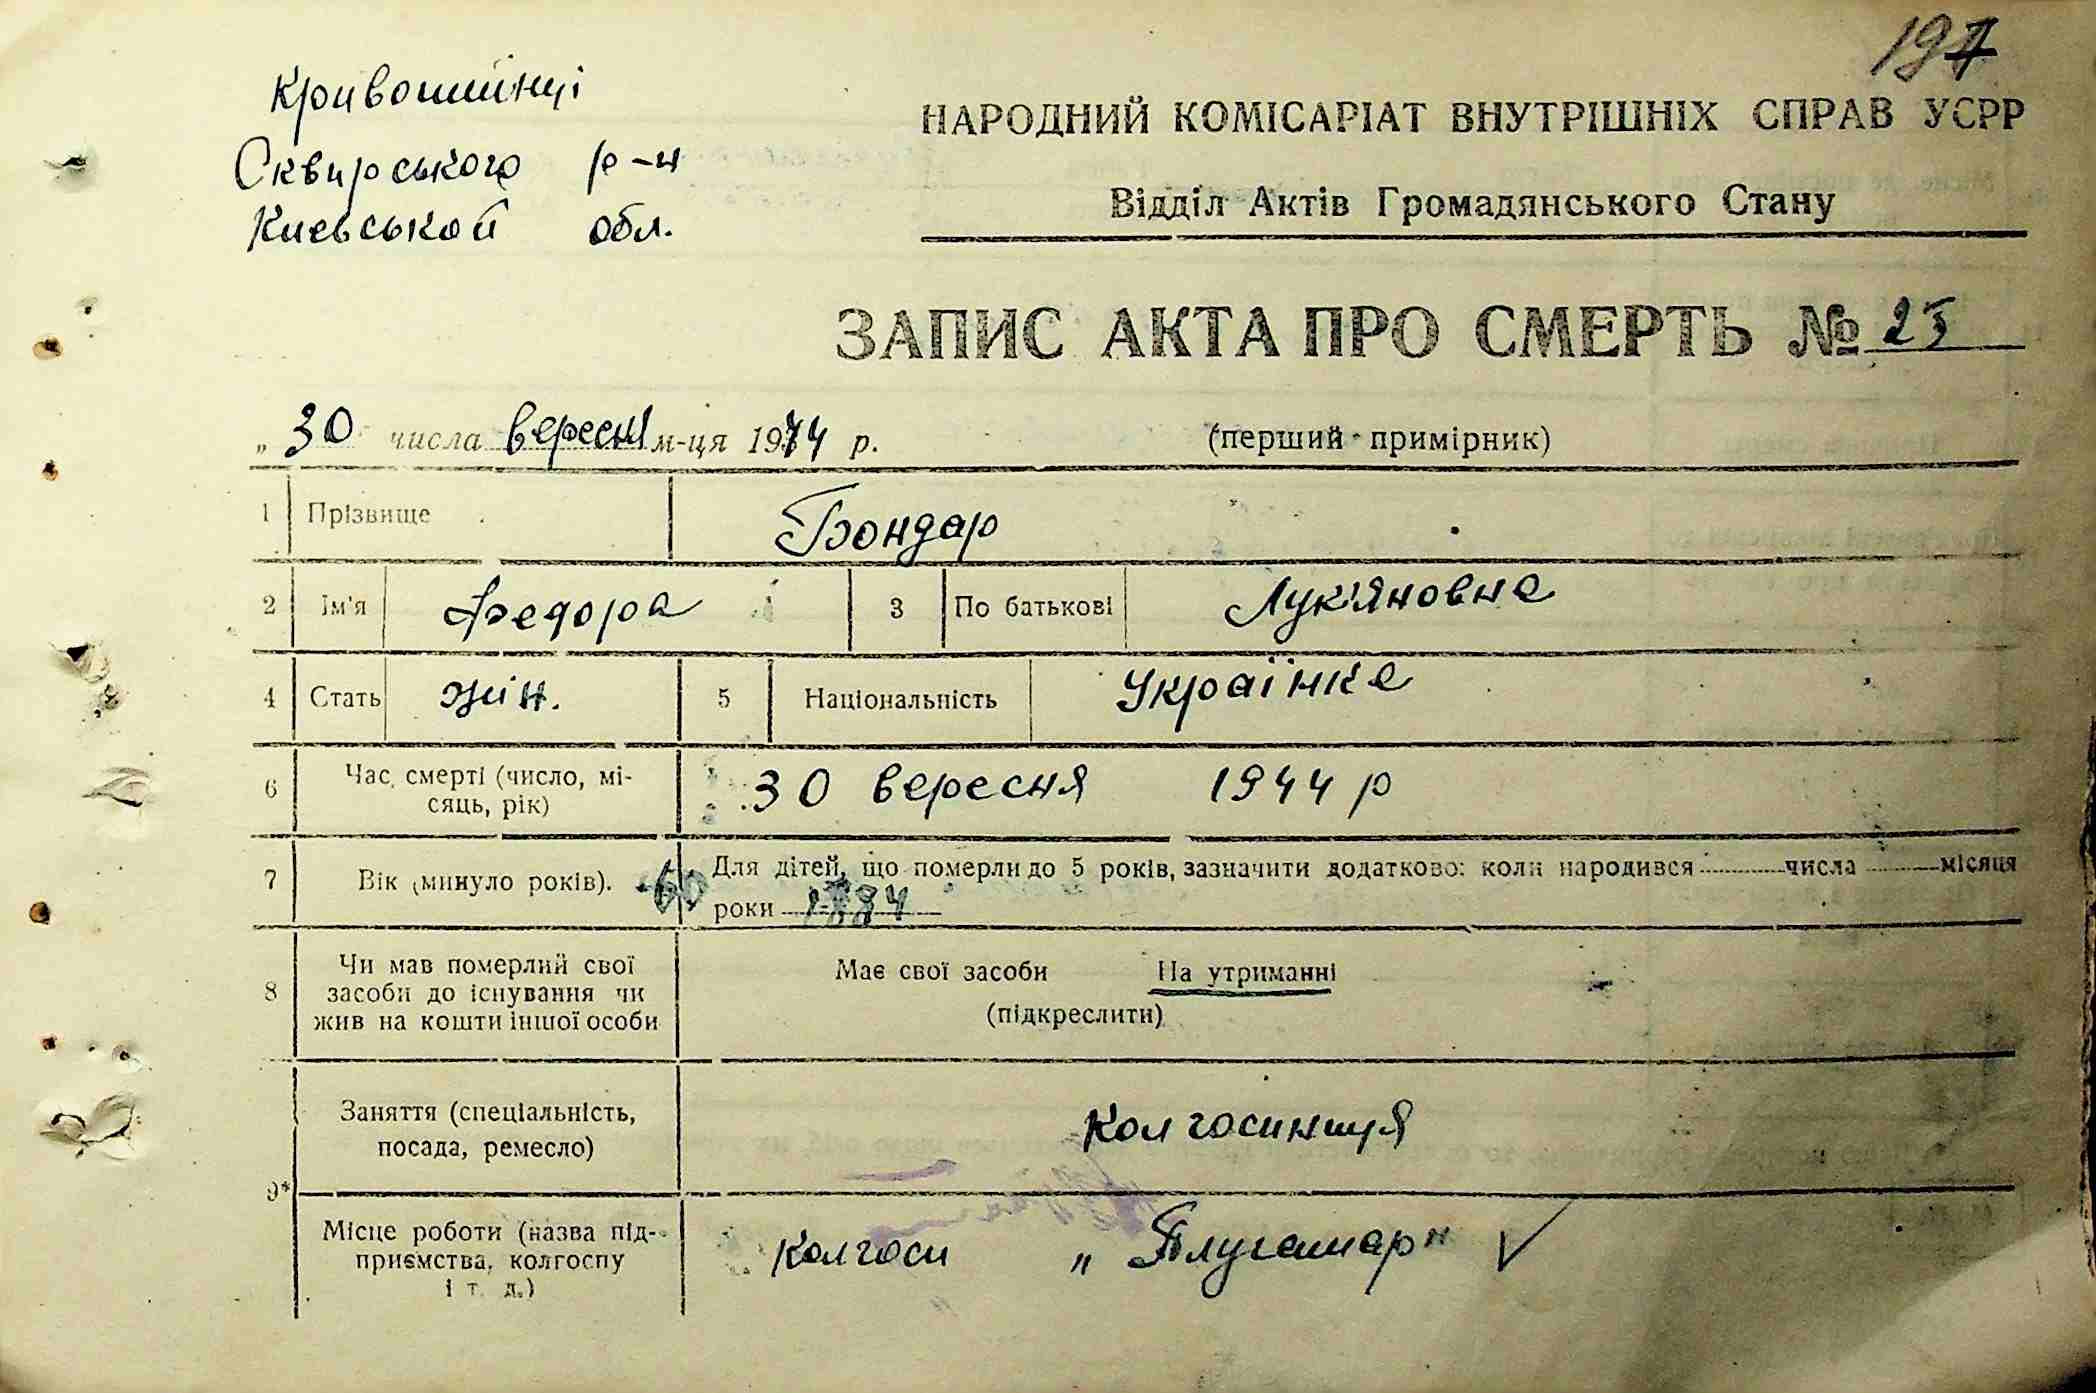 197
Кривошиїнці
Сквирського р-н
Киевськой обл.
НАРОДНИЙ КОМІСАРІАТ ВНУТРІШНІХ СПРАВ УСРР
Відділ Актів Громадянського Стану
ЗАПИС АКТА ПРО СМЕРТЬ № 25
„ 30 числа вересня м-ця 1944 р. (перший примірник)
1 Прізвище Бондар
2 Ім'я Федора 3 По батькові Лук'яновна
4 Стать жін. 5 Національність Українка
6 Час смерті (число, мі-
сяць, рік) 30 вересня 1944 р
7 Вік (минуло років). 60 Для дітей, що померли до 5 років, зазначити додатково: коли народився числа місяця
роки 1884
8 Чи мав померлий свої
засоби до існування чи
жив на кошти іншої особи
Має свої засоби На утриманні
(підкреслити)
9*
Заняття (спеціальність,
посада, ремесло) Колгоспниця
Місце роботи (назва під-
приємства, колгоспу
і т. д.) Колгосп „Плугатар"